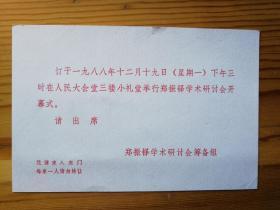 订于一九八八年十二月十九日（星期一）下午三
时在人民大会堂三楼小礼堂举行郑振铎学术研讨会开
幕式。
请出席
郑振铎学术研讨会筹备组
凭请柬入东门
每柬一人请勿转让